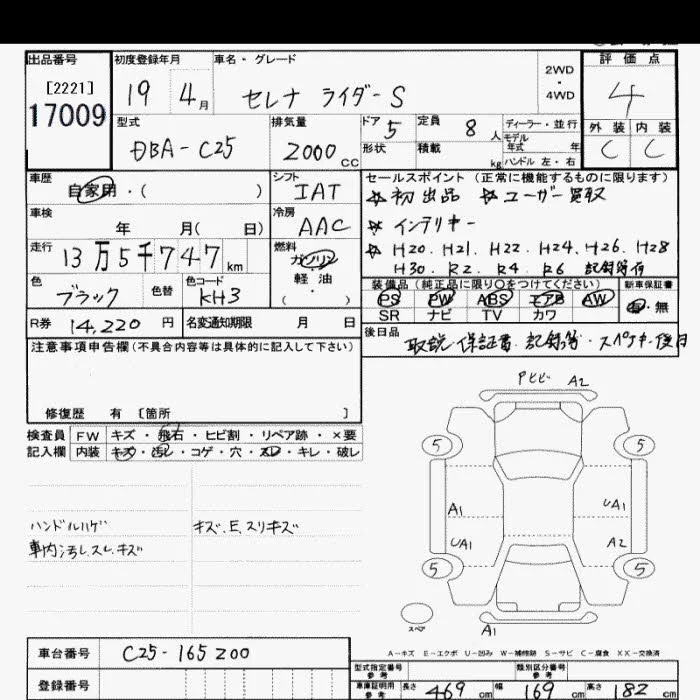 出品番号 初度登録年月 車名・グレード 2WD・4WD 評価点
[2221]
17009
19 4月 セレナ ライダーS 4
型式 排気量 ドア 5 定員 8人 ディーラー・並行 外装 内装
DBA-C25 2000cc 形状 積載 kg モデル年式 年 ハンドル 左・右 C C
車歴 自家用・( ) シフト IAT セールスポイント(正常に機能するものに限ります)
☆初出品 ☆ユーザー買取
車検 年 月( 日) 冷房 AAC ☆インテリキー
走行 13万5千747km 燃料 ガソリン・軽油( ・ ) ☆H20. H21. H22. H24. H26. H28
H30. R2. R4. R6 記録簿有
色 ブラック 色替 色コード KH3 装備品(純正品に限り○をつけてください) 新車保証書
PS PW ABS エアB AW 有・無
SR ナビ TV カワ
R券 14,220円 名変通知期限 月 日
後日品 取説・保証書・記録簿・スペアキー後日
注意事項申告欄(不具合内容等は具体的に記入して下さい)
修復歴 有 [箇所 ]
検査員 FW キズ・飛石・ヒビ割・リペア跡・×要
記入欄 内装 キズ・汚レ・コゲ・穴・スレ・キレ・破レ
ハンドルハゲ キズ、E、スリキズ
車内汚レ、スレ、キズ
Pヒビ A2
5 5
A1 UA1
UA1 A2
5 5
スペア A1
A-キズ E-エクボ U-凹み W-補修跡 S-サビ C-腐食 XX-交換済
車台番号 C25-165200
登録番号
型式指定番号 参考 類別区分番号 参考
車庫証明用 参考 長さ 469cm 幅 169cm 高さ 182cm